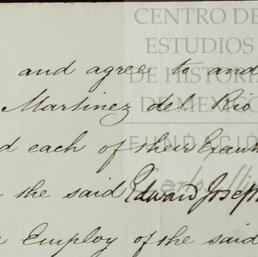 CENTRO DE
ESTUDIOS
DE HISTOR
DE MÉXICO
FUNDACIÓ
and agree to and
Martinez del Rio
each of their Exec
the said Edward Joseph
Employ of the said